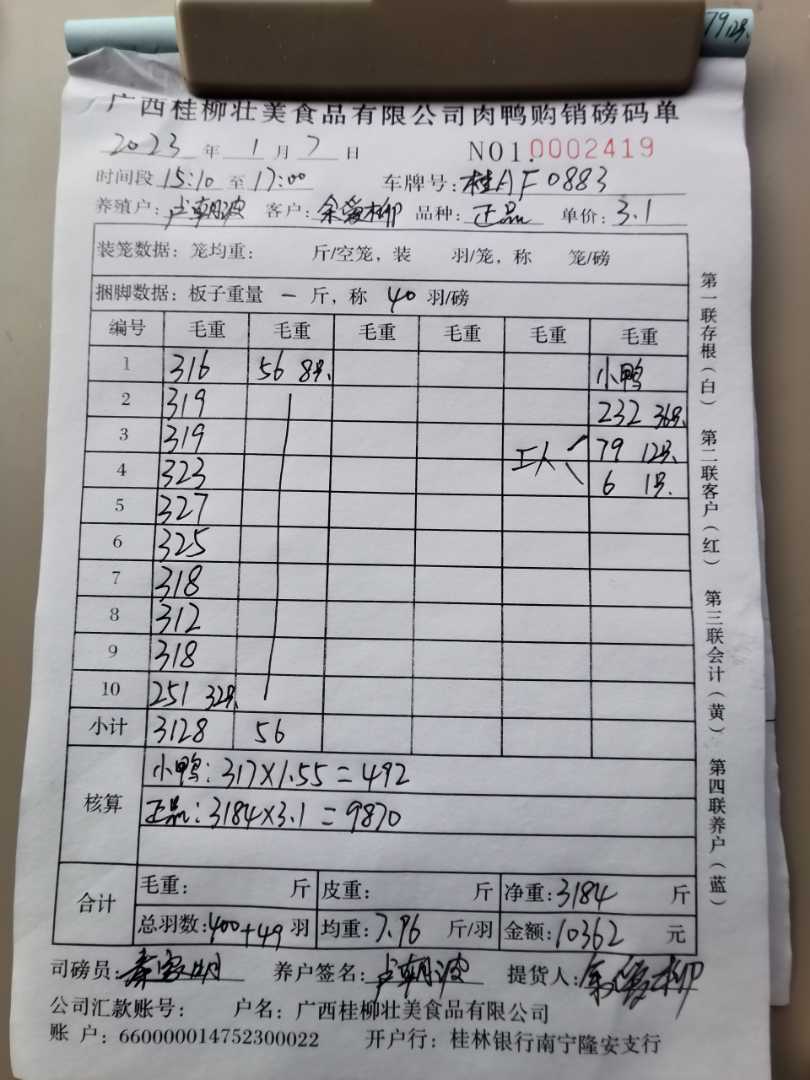 79 12只.
广西桂柳壮美食品有限公司肉鸭购销磅码单
2023 年 1 月 7 日 NO1.0002419
时间段 15:10 至 17:00 车牌号: 桂AF0883
养殖户: 卢朝波 客户: 余爱柳 品种: 正品 单价: 3.1
装笼数据: 笼均重: 斤/空笼, 装 羽/笼, 称 笼/磅
捆脚数据: 板子重量 一 斤, 称 40 羽/磅
编号 毛重 毛重 毛重 毛重 毛重 毛重
1 316 56 8只. 小鸭
2 319 232 36只.
3 319 工人 79 12只.
4 323 6 1只.
5 327
6 325
7 318
8 312
9 318
10 251 32只.
小计 3128 56
核算 小鸭: 317×1.55=492
正品: 3184×3.1=9870
合计 毛重: 斤 皮重: 斤 净重: 3184 斤
总羽数: 400+49 羽 均重: 7.96 斤/羽 金额: 10362 元
司磅员: 养户签名: 卢朝波 提货人: 余爱柳
公司汇款账号: 户名: 广西桂柳壮美食品有限公司
账 户: 660000014752300022 开户行: 桂林银行南宁隆安支行
第一联存根(白) 第二联客户(红) 第三联会计(黄) 第四联养户(蓝)